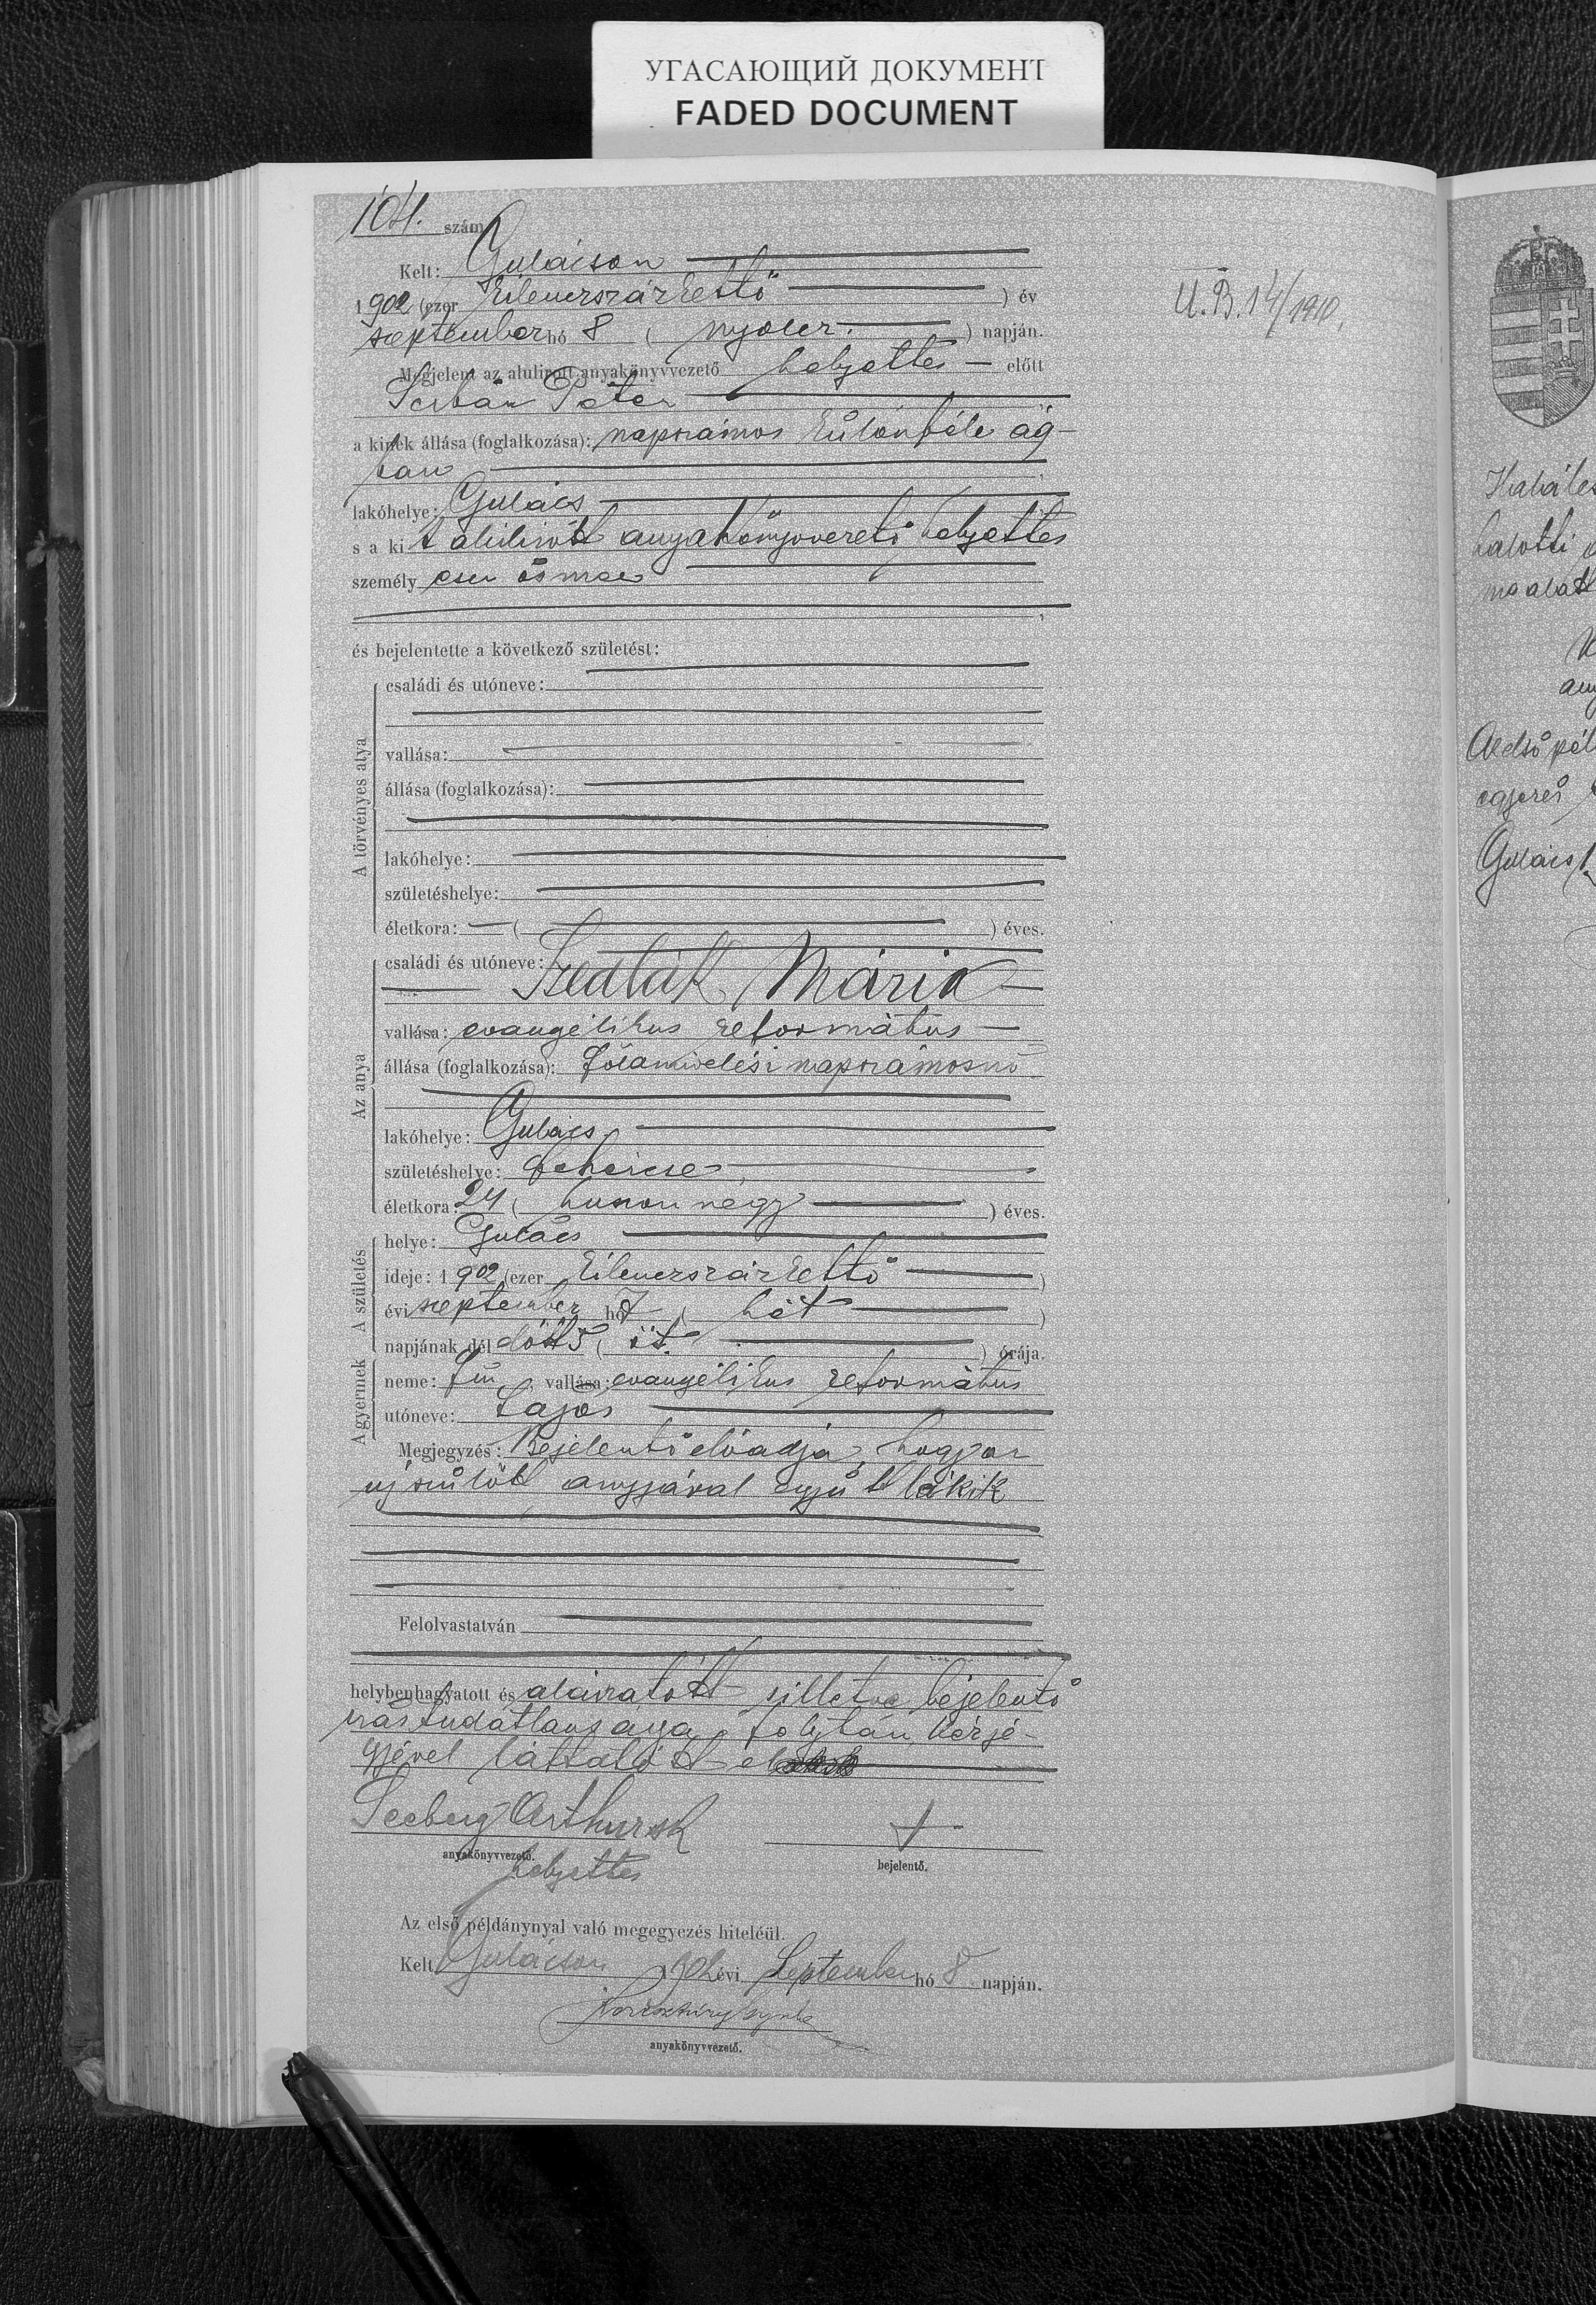 УГАСАЮЩИЙ ДОКУМЕНТ
FADED DOCUMENT
104. szám
Kelt: Gulácson
1902 (ezer kilenczszázkettő) év
szeptember hó 8 (nyolcz) napján.
U. B. 14/1910.
Megjelent az alulirott anyakönyvvezető helyettes előtt
Péter
a kinek állása (foglalkozása): napszámos különféle ág-
ban
lakóhelye: Gulács
s a kit alulirott anyakönyvvezető helyettes
személy
és bejelentette a következő születést:
A törvényes atya
családi és utóneve:
vallása:
állása (foglalkozása):
lakóhelye:
születéshelye:
életkora: ( ) éves.
Az anya
családi és utóneve:
Szedlák Mária
vallása: evangélikus református
állása (foglalkozása): földmivelési napszámosnő
lakóhelye: Gulács
születéshelye:
életkora: 24 (huszonnégy) éves.
A születés
helye: Gulács
ideje: 1902 (ezer kilenczszázkettő)
évi szeptember hó 7 (hét)
napjának dél előtt 5 (öt) órája.
A gyermek
neme: fiú, vallása: evangélikus református
utóneve: Lajos
Megjegyzés: Bejelentő előadja, hogy az
ujszülött anyjával együtt lakik
Felolvastatván
helybenhagyatott és aláiratott illetve bejelentő
irástudatlansága folytán kézje-
gyével láttatott el
Seeberg Arthur sk
anyakönyvvezető.
helyettes
+
bejelentő.
Az első példánynyal való megegyezés hiteléül.
Kelt Gulácson 1902 évi September hó 8 napján.
anyakönyvvezető.
halotti
Gulács